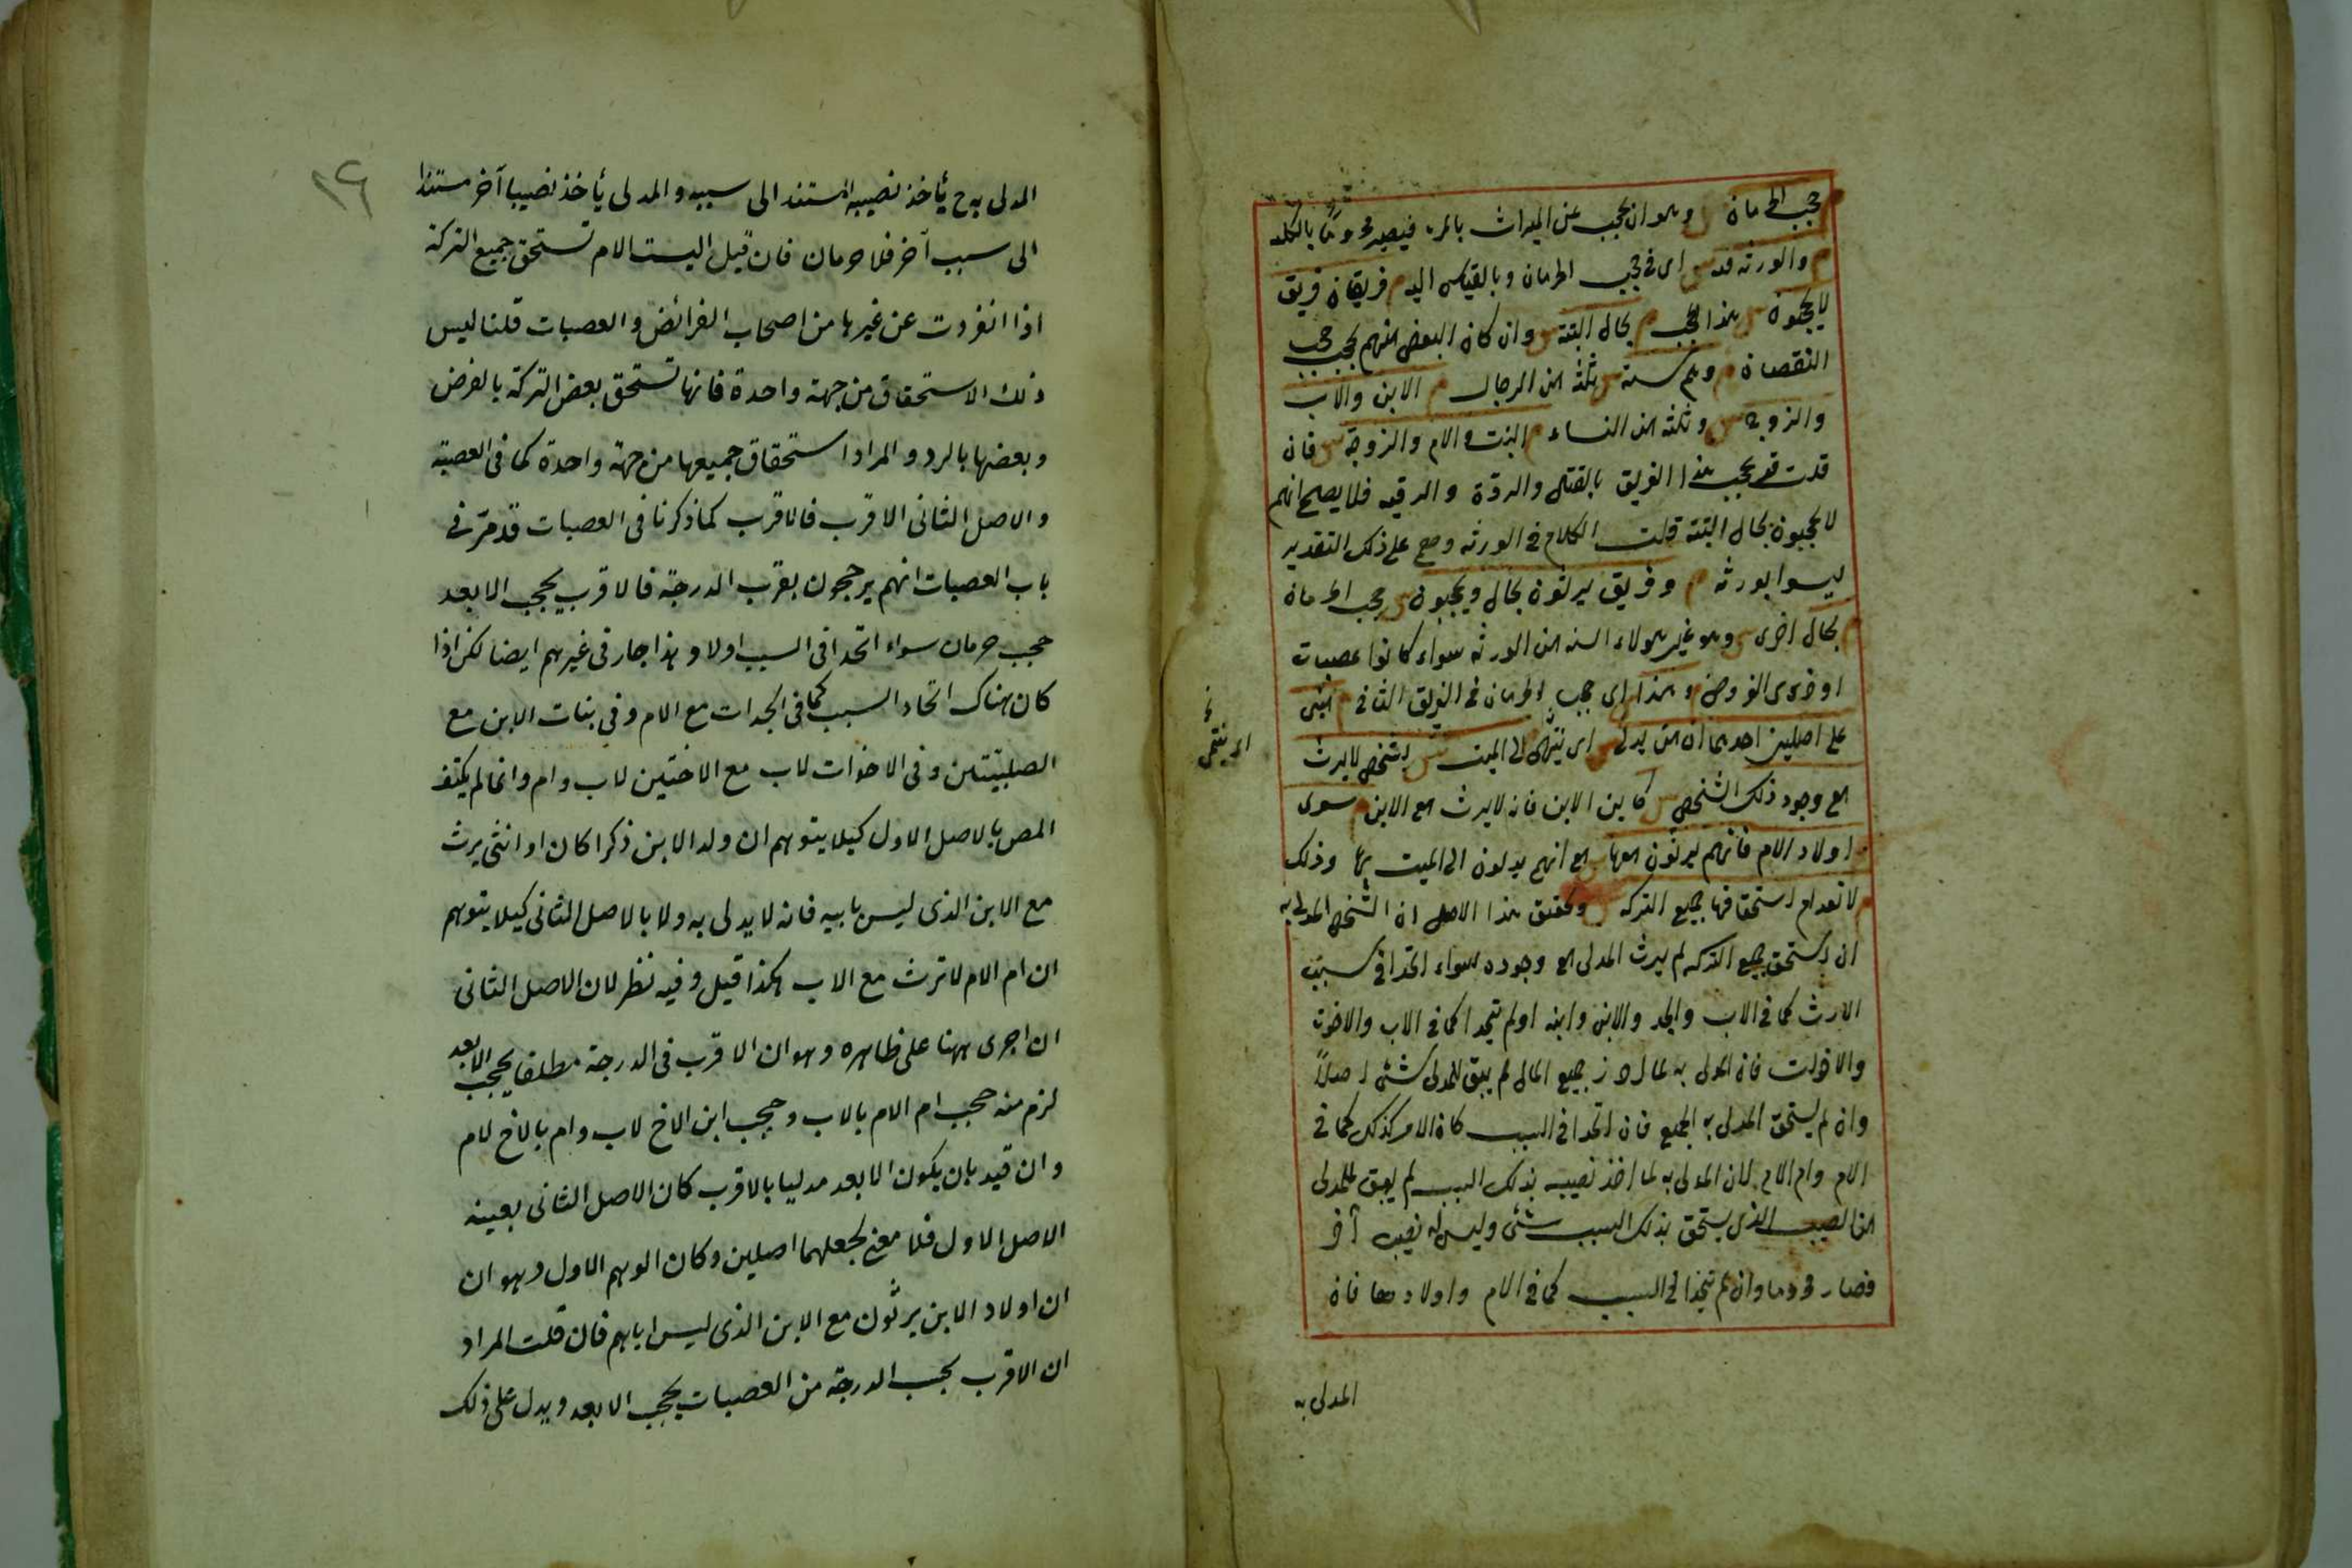 م حجب الحرمان س وهو ان يحجب عن الميراث بالمرة فيصير محروما بالكلية
م والورثة فيه س اى فى حجب الحرمان وبالقياس اليه م فريقان فريق
لا يحجبون س هذا الحجب م بحال البتة س وان كان البعض منهم يحجب حجب
النقصان م وهم ستة س ثلثة من الرجال م الابن والاب
والزوج س وثلثة من النساء م البنت والام والزوجة س فان
قلت قد يحجب هذا الفريق بالقتل والردة والرقية فلا يصح انهم
لا يحجبون بحال البتة قلت الكلام فى الورثة وهم على ذلك التقدير
ليسوا بورثة م وفريق يرثون بحال ويحجبون س حجب الحرمان
م بحال اخرى س وهو غير هولاء الستة من الورثة سواء كانوا عصبات
او ذوى الفروض م وهذا س اى حجب الحرمان فى الفريق الثانى م مبنى
على اصلين احدهما ان من يدلى س اى ينتهى الى الميت س بشخص لا يرث
مع وجود ذلك الشخص س كابن الابن فانه لا يرث مع الابن م سوى
اولاد الام فانهم يرثون معها س مع انهم يدلون الى الميت بها وذلك
م لانعدام استحقاقها جميع التركة س وتحقيق هذا الاصل ان الشخص المدلى به
ان استحق جميع التركة لم يرث المدلى مع وجوده سواء اتحدا فى سبب
الارث كما فى الاب والجد والابن وابنه او لم يتحدا كما فى الاب والاخوة
والاخوات فان المدلى به لما احرز جميع المال لم يبق للمدلى شئى اصلاً
وان لم يستحق المدلى به الجميع فان اتحدا فى السبب كان الامر كذلك كما فى
الام وام الام لان المدلى به لما اخذ نصيبه بذلك السبب لم يبق للمدلى
من النصيب الذى يستحق بذلك السبب شئى وليس له نصيب آخر
فصار محروما وان لم يتحدا فى السبب كما فى الام واولادها فان
المدلى به
اى ينتمى
المدلى به ح يأخذ نصيبه المستند الى سببه والمدلى يأخذ نصيبا آخر مستندا
الى سبب آخر فلا حرمان فان قيل اليست الام تستحق جميع التركة
اذا انفردت عن غيرها من اصحاب الفرائض والعصبات قلنا ليس
ذلك الاستحقاق من جهة واحدة فانها تستحق بعض التركة بالفرض
وبعضها بالرد والمراد استحقاق جميعها من جهة واحدة كما فى العصبة
والاصل الثانى الاقرب فالاقرب كما ذكرنا فى العصبات قد مرّ فى
باب العصبات انهم يرجحون بقرب الدرجة فالاقرب يحجب الابعد
حجب حرمان سواء اتحدا فى السبب اولا وهذا جار فى غيرهم ايضا لكن اذا
كان هناك اتحاد السبب كما فى الجدات مع الام وفى بنات الابن مع
الصلبيتين وفى الاخوات لاب مع الاختين لاب وام وانما لم يكتف
المص بالاصل الاول كيلا يتوهم ان ولد الابن ذكرا كان او انثى يرث
مع الابن الذى ليس بابيه فانه لا يدلى به ولا بالاصل الثانى كيلا يتوهم
ان ام الام لا ترث مع الاب هكذا قيل وفيه نظر لان الاصل الثانى
ان اجرى ههنا على ظاهره وهو ان الاقرب فى الدرجة مطلقا يحجب الابعد
لزم منه حجب ام الام بالاب وحجب ابن الاخ لاب وام بالاخ لام
وان قيد بان يكون الابعد مدليا بالاقرب كان الاصل الثانى بعينه
الاصل الاول فلا معنى لجعلهما اصلين وكان الوهم الاول وهو ان
ان اولاد الابن يرثون مع الابن الذى ليس اباهم فان قلت المراد
ان الاقرب بحسب الدرجة من العصبات يحجب الابعد ويدل على ذلك